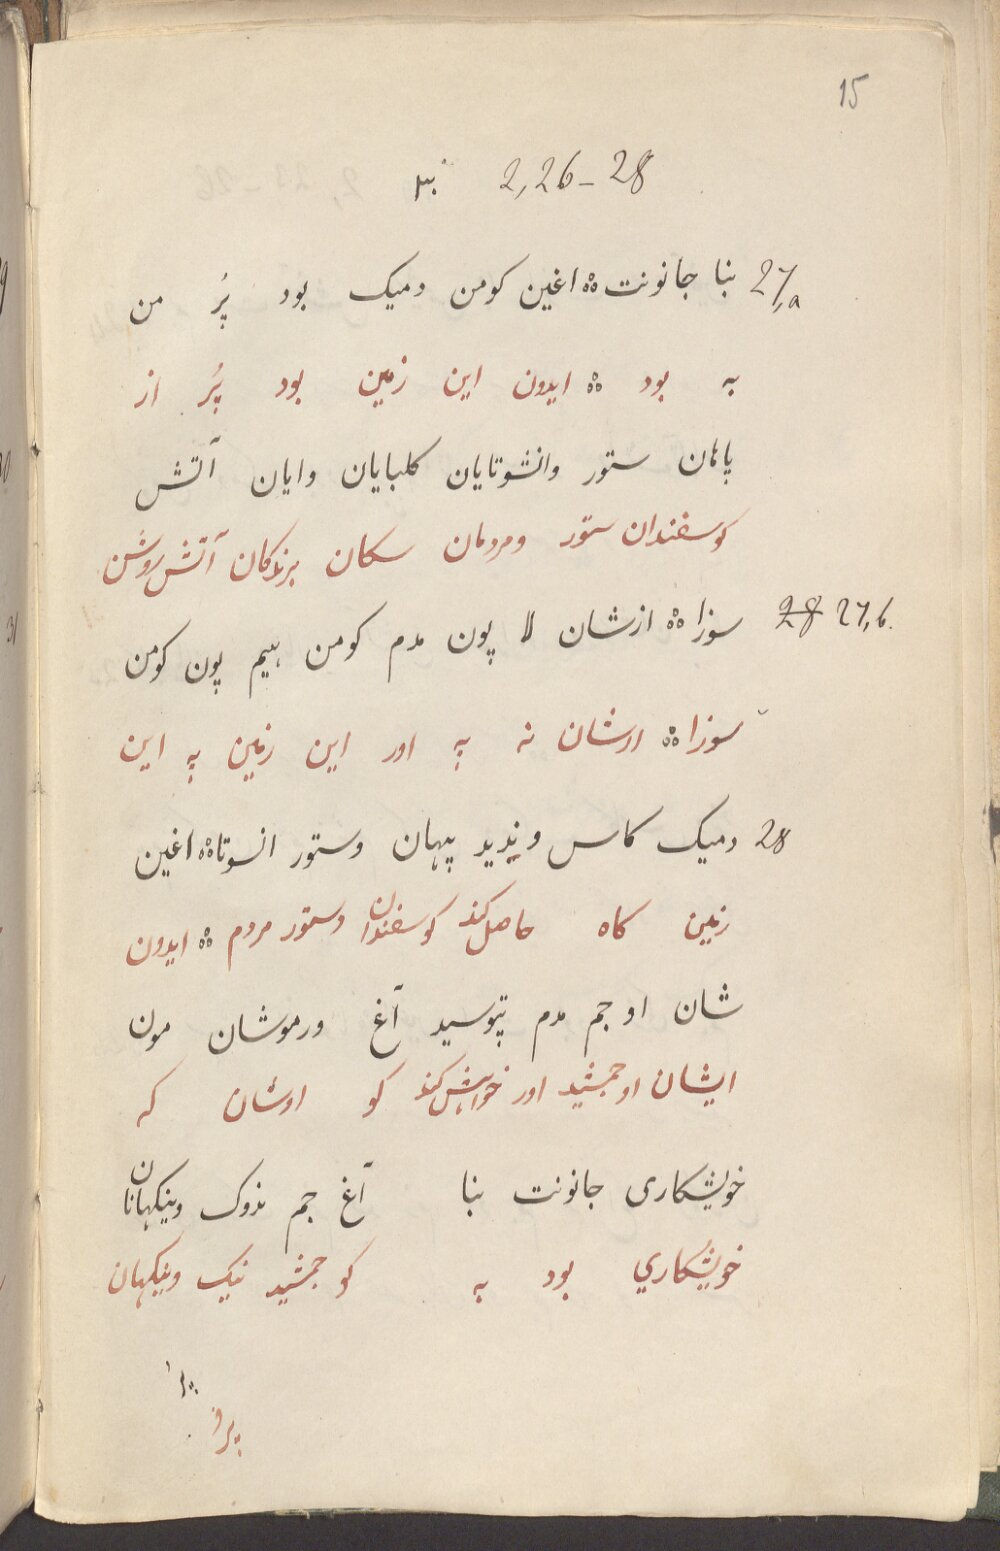 15
2,26–28
27,a بنا جانونت ؞ اغین کومن دمیک بود پُر من
به بود ؞ ایدون این زمین بود پُر از
پاهان ستور وانشوتایان کلبایان وایان آتش
کوسفندان ستور ومردمان سکان پرندکان آتش روشن
28 27,b. سوزا ؞ ازشان لا پون مدم کومن هیم پون کومن
سوزا ؞ ازشان نه په اور این زمین په این
28 دمیک کاس وندید پهان وستور انسوتا ؞ اغین
زمین کاه حاصل کند کوسفندان وستور مردم ؞ ایدون
شان او جم مدم پتوسید آغ ورموشان مون
ایشان او جمشید اور خواهش کند کو اوشان که
خویشکاری جانونت بنا آغ جم نذوک وینکهانان
خویشکاري بود به کو جمشید نیک وینکهان